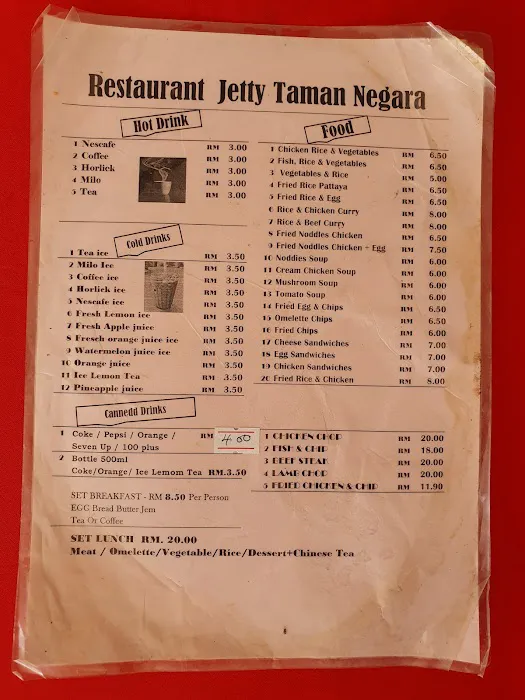 Restaurant Jetty Taman Negara
Hot Drink
1 Nescafe RM 3.00
2 Coffee RM 3.00
3 Horlick RM 3.00
4 Milo RM 3.00
5 Tea RM 3.00
Cold Drinks
1 Tea ice RM 3.50
2 Milo Ice RM 3.50
3 Coffee ice RM 3.50
4 Horlick ice RM 3.50
5 Nescafe ice RM 3.50
6 Fresh Lemon ice RM 3.50
7 Fresh Apple juice RM 3.50
8 Fresch orange juice ice RM 3.50
9 Watermelon juice ice RM 3.50
10 Orange juice RM 3.50
11 Ice Lemon Tea RM 3.50
12 Pineapple juice RM 3.50
Cannedd Drinks
1 Coke / Pepsi / Orange / RM 4.00
Seven Up / 100 plus
2 Bottle 500ml
Coke/Orange/ Ice Lemom Tea RM.3.50
SET BREAKFAST - RM 8.50 Per Person
EGG Bread Butter Jem
Tea Or Coffee
SET LUNCH RM. 20.00
Meat / Omelette/Vegetable/Rice/Dessert+Chinese Tea
Food
1 Chicken Rice & Vegetables RM 6.50
2 Fish, Rice & Vegetables RM 6.50
3 Vegetables & Rice RM 5.00
4 Fried Rice Pattaya RM 6.50
5 Fried Rice & Egg RM 6.50
6 Rice & Chicken Curry RM 8.00
7 Rice & Beef Curry RM 8.00
8 Fried Noddles Chicken RM 6.50
9 Fried Noddles Chicken + Egg RM 7.50
10 Noddies Soup RM 6.00
11 Cream Chicken Soup RM 6.00
12 Mushroom Soup RM 6.00
13 Tomato Soup RM 6.00
14 Fried Egg & Chips RM 6.50
15 Omelette Chips RM 6.50
16 Fried Chips RM 6.00
17 Cheese Sandwiches RM 7.00
18 Egg Sandwiches RM 7.00
19 Chicken Sandwiches RM 7.00
20 Fried Rice & Chicken RM 8.00
1 CHICKEN CHOP RM 20.00
2 FISH & CHIP RM 18.00
3 BEEF STEAK RM 20.00
4 LAMB CHOP RM 20.00
5 FRIED CHICKEN & CHIP RM 11.90